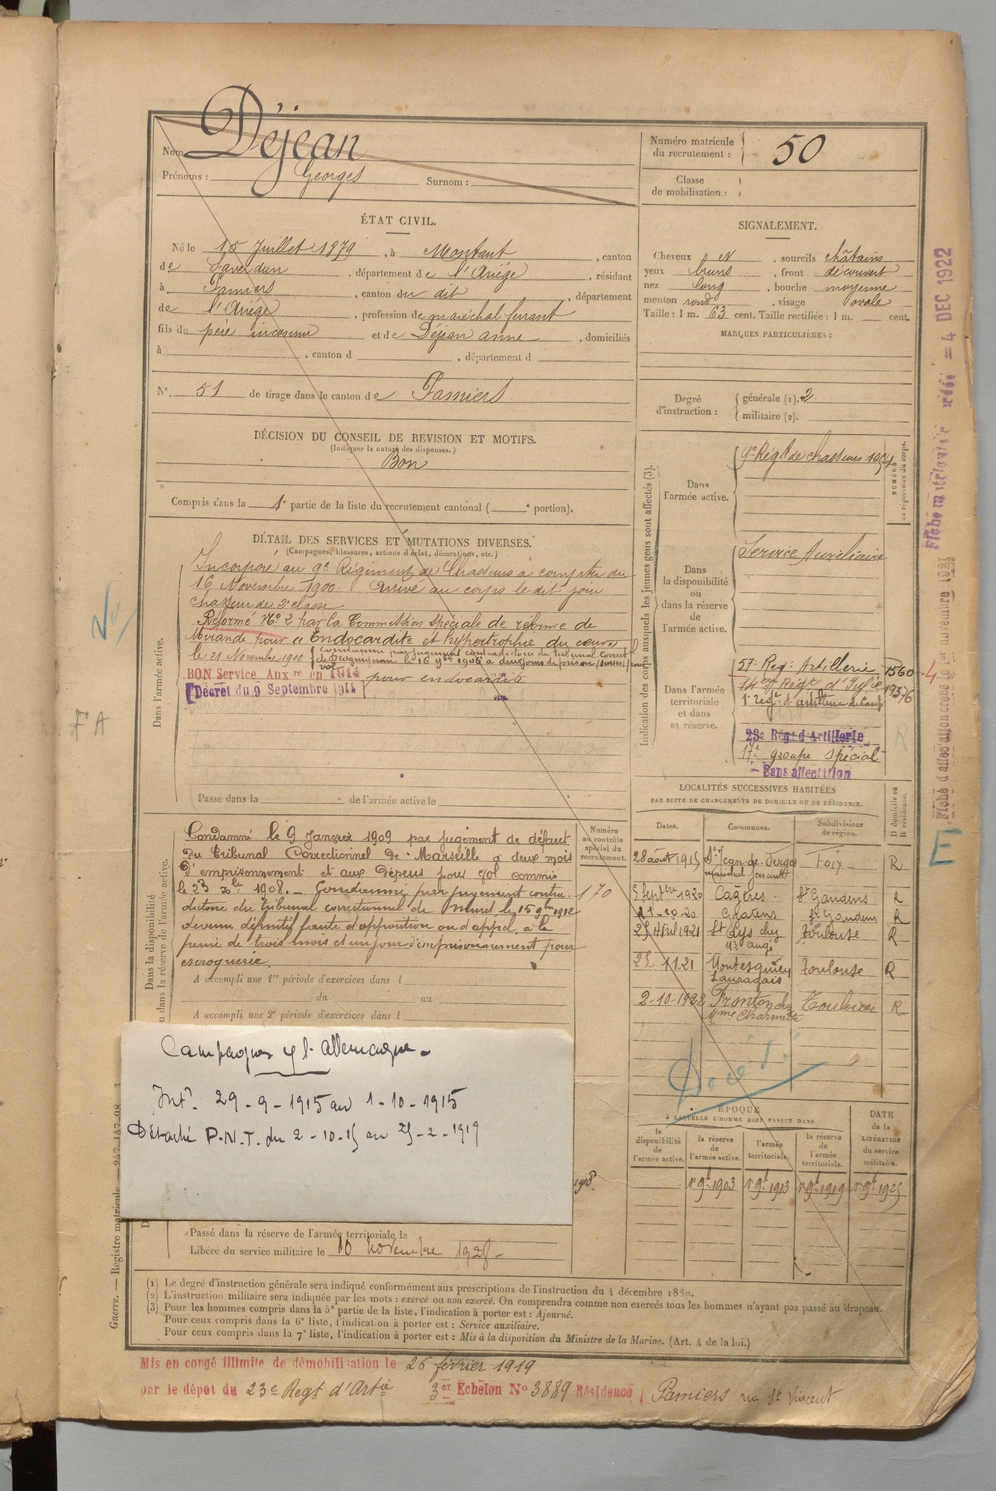 Nom : Déjean
Prénoms : Georges Surnom :
Numéro matricule du recrutement : 50
Classe de mobilisation :
ÉTAT CIVIL.
Né le 15 Juillet 1879, à Montaut, canton
de Saverdun, département de l'Ariège, résidant
à Pamiers, canton du dit, département
de l'Ariége, profession de maréchal ferrant
fils de père inconnu et de Déjean anne, domiciliés
à , canton d , département d
N° 51 de tirage dans le canton de Pamiers
SIGNALEMENT.
Cheveux et, sourcils châtains
yeux bruns, front découvert
nez long, bouche moyenne
menton rond, visage ovale
Taille : 1 m. 63 cent. Taille rectifiée : 1 m. cent.
MARQUES PARTICULIÈRES :
Degré d'instruction : générale (1). 2
militaire (2).
DÉCISION DU CONSEIL DE REVISION ET MOTIFS.
(Indiquer la nature des dispenses.)
Bon
Compris dans la 1e partie de la liste du recrutement cantonal ( e portion).
DÉTAIL DES SERVICES ET MUTATIONS DIVERSES.
(Campagnes, blessures, actions d'éclat, décorations, etc.)
Dans l'armée active.
Incorporé au 9e Régiment de Chasseurs à compter du
16 Novembre 1900. Arrivé au corps le dit jour
chasseur de 2e classe
Réformé N° 2 par la Commission spéciale de réforme de
Mirande pour « Endocardite et hypertrophie du coeur
le 21 Novembre 1900
BON Service Auxre en 1914 pour endocardite
Décret du 9 Septembre 1914
FA
Passé dans la de l'armée active le
Condamné le 9 Janvier 1909 par jugement de défaut
du Tribunal Correctionnel de Marseille à deux mois
d'emprisonnement et aux dépens pour vol commis
le 23 xbre 1908. — Condamné par jugement contra-
dictoire du tribunal correctionnel de Muret le 15 9bre 1912
devenu définitif faute d'opposition ou d'appel, à la
peine de trois mois et un jour d'emprisonnement pour
escroquerie.
Numéro au contrôle spécial du recrutement.
170
A accompli une 1re période d'exercices dans l
du au
A accompli une 2e période d'exercices dans l
Campagnes c/ l'Allemagne
Intr. 29-9-1915 au 1-10-1915
Détaché P.N.T. du 2-10-15 au 25-2-1919
Passé dans la réserve de l'armée territoriale le
Libéré du service militaire le 10 novembre 1925
Indication des corps auxquels les jeunes gens sont affectés (3).
Dans l'armée active.
9e Régt de chasseurs
Dans la disponibilité ou dans la réserve de l'armée active.
Service Auxiliaire
Dans l'armée territoriale et dans sa réserve.
57e Reg. Artillerie 1560
23e Régt d'Artillerie
17e groupe spécial
Sans affectation
LOCALITÉS SUCCESSIVES HABITÉES
PAR SUITE DE CHANGEMENTS DE DOMICILE OU DE RÉSIDENCE.
Dates. Communes. Subdivisions de région. D domicile ou R résidence.
28 août 1915 St Jean-de-Verges Foix R
Septbre 1920 Cazères St Gaudens R
St Gaudens R
25 Avril 1921 St Lys chez Toulouse R
Montesquieu Lauragais Toulouse R
2-10-1922 Fronton chez Mme Charmette Toulouse R
Décédé
ÉPOQUE
À LAQUELLE L'HOMME DOIT PASSER DANS
la disponibilité de l'armée active. la réserve de l'armée active. l'armée territoriale. la réserve de l'armée territoriale. DATE de la LIBÉRATION du service militaire.
1er 9bre 1903 1er 9bre 1913 1er 9bre 1919 1er 9bre 1925
(1) Le degré d'instruction générale sera indiqué conformément aux prescriptions de l'instruction du 4 décembre 1889.
(2) L'instruction militaire sera indiquée par les mots : exercé ou non exercé. On comprendra comme non exercés tous les hommes n'ayant pas passé au drapeau.
(3) Pour les hommes compris dans la 5e partie de la liste, l'indication à porter est : Ajourné.
Pour ceux compris dans la 6e liste, l'indication à porter est : Service auxiliaire.
Pour ceux compris dans la 7e liste, l'indication à porter est : Mis à la disposition du Ministre de la Marine. (Art. 4 de la loi.)
Mis en congé illimité de démobilisation le 26 février 1919
par le dépôt du 23e Regt d'Artie 3er Echelon N° 3889 Résidence Pamiers rue St Vincent